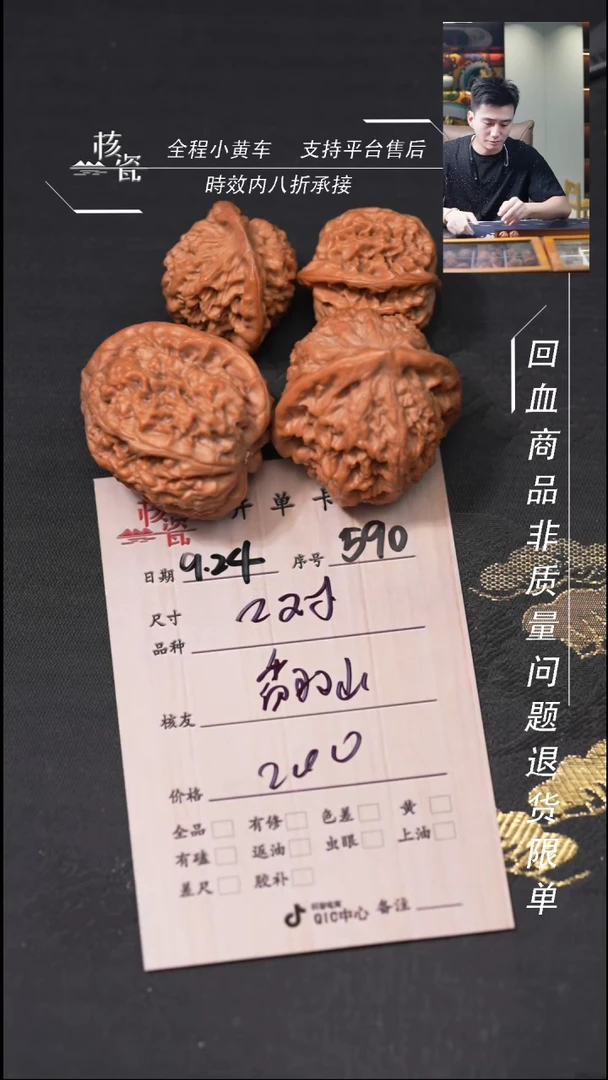 核瓷
全程小黄车 支持平台售后
時效内八折承接
回血商品非质量问题退货限单
核瓷 开单卡
日期 9.24 序号 590
尺寸 22寸
品种
核友
价格 240
全品 有修 色差 黄
有磕 返油 虫眼 上油
差尺 胶补
QIC中心 备注